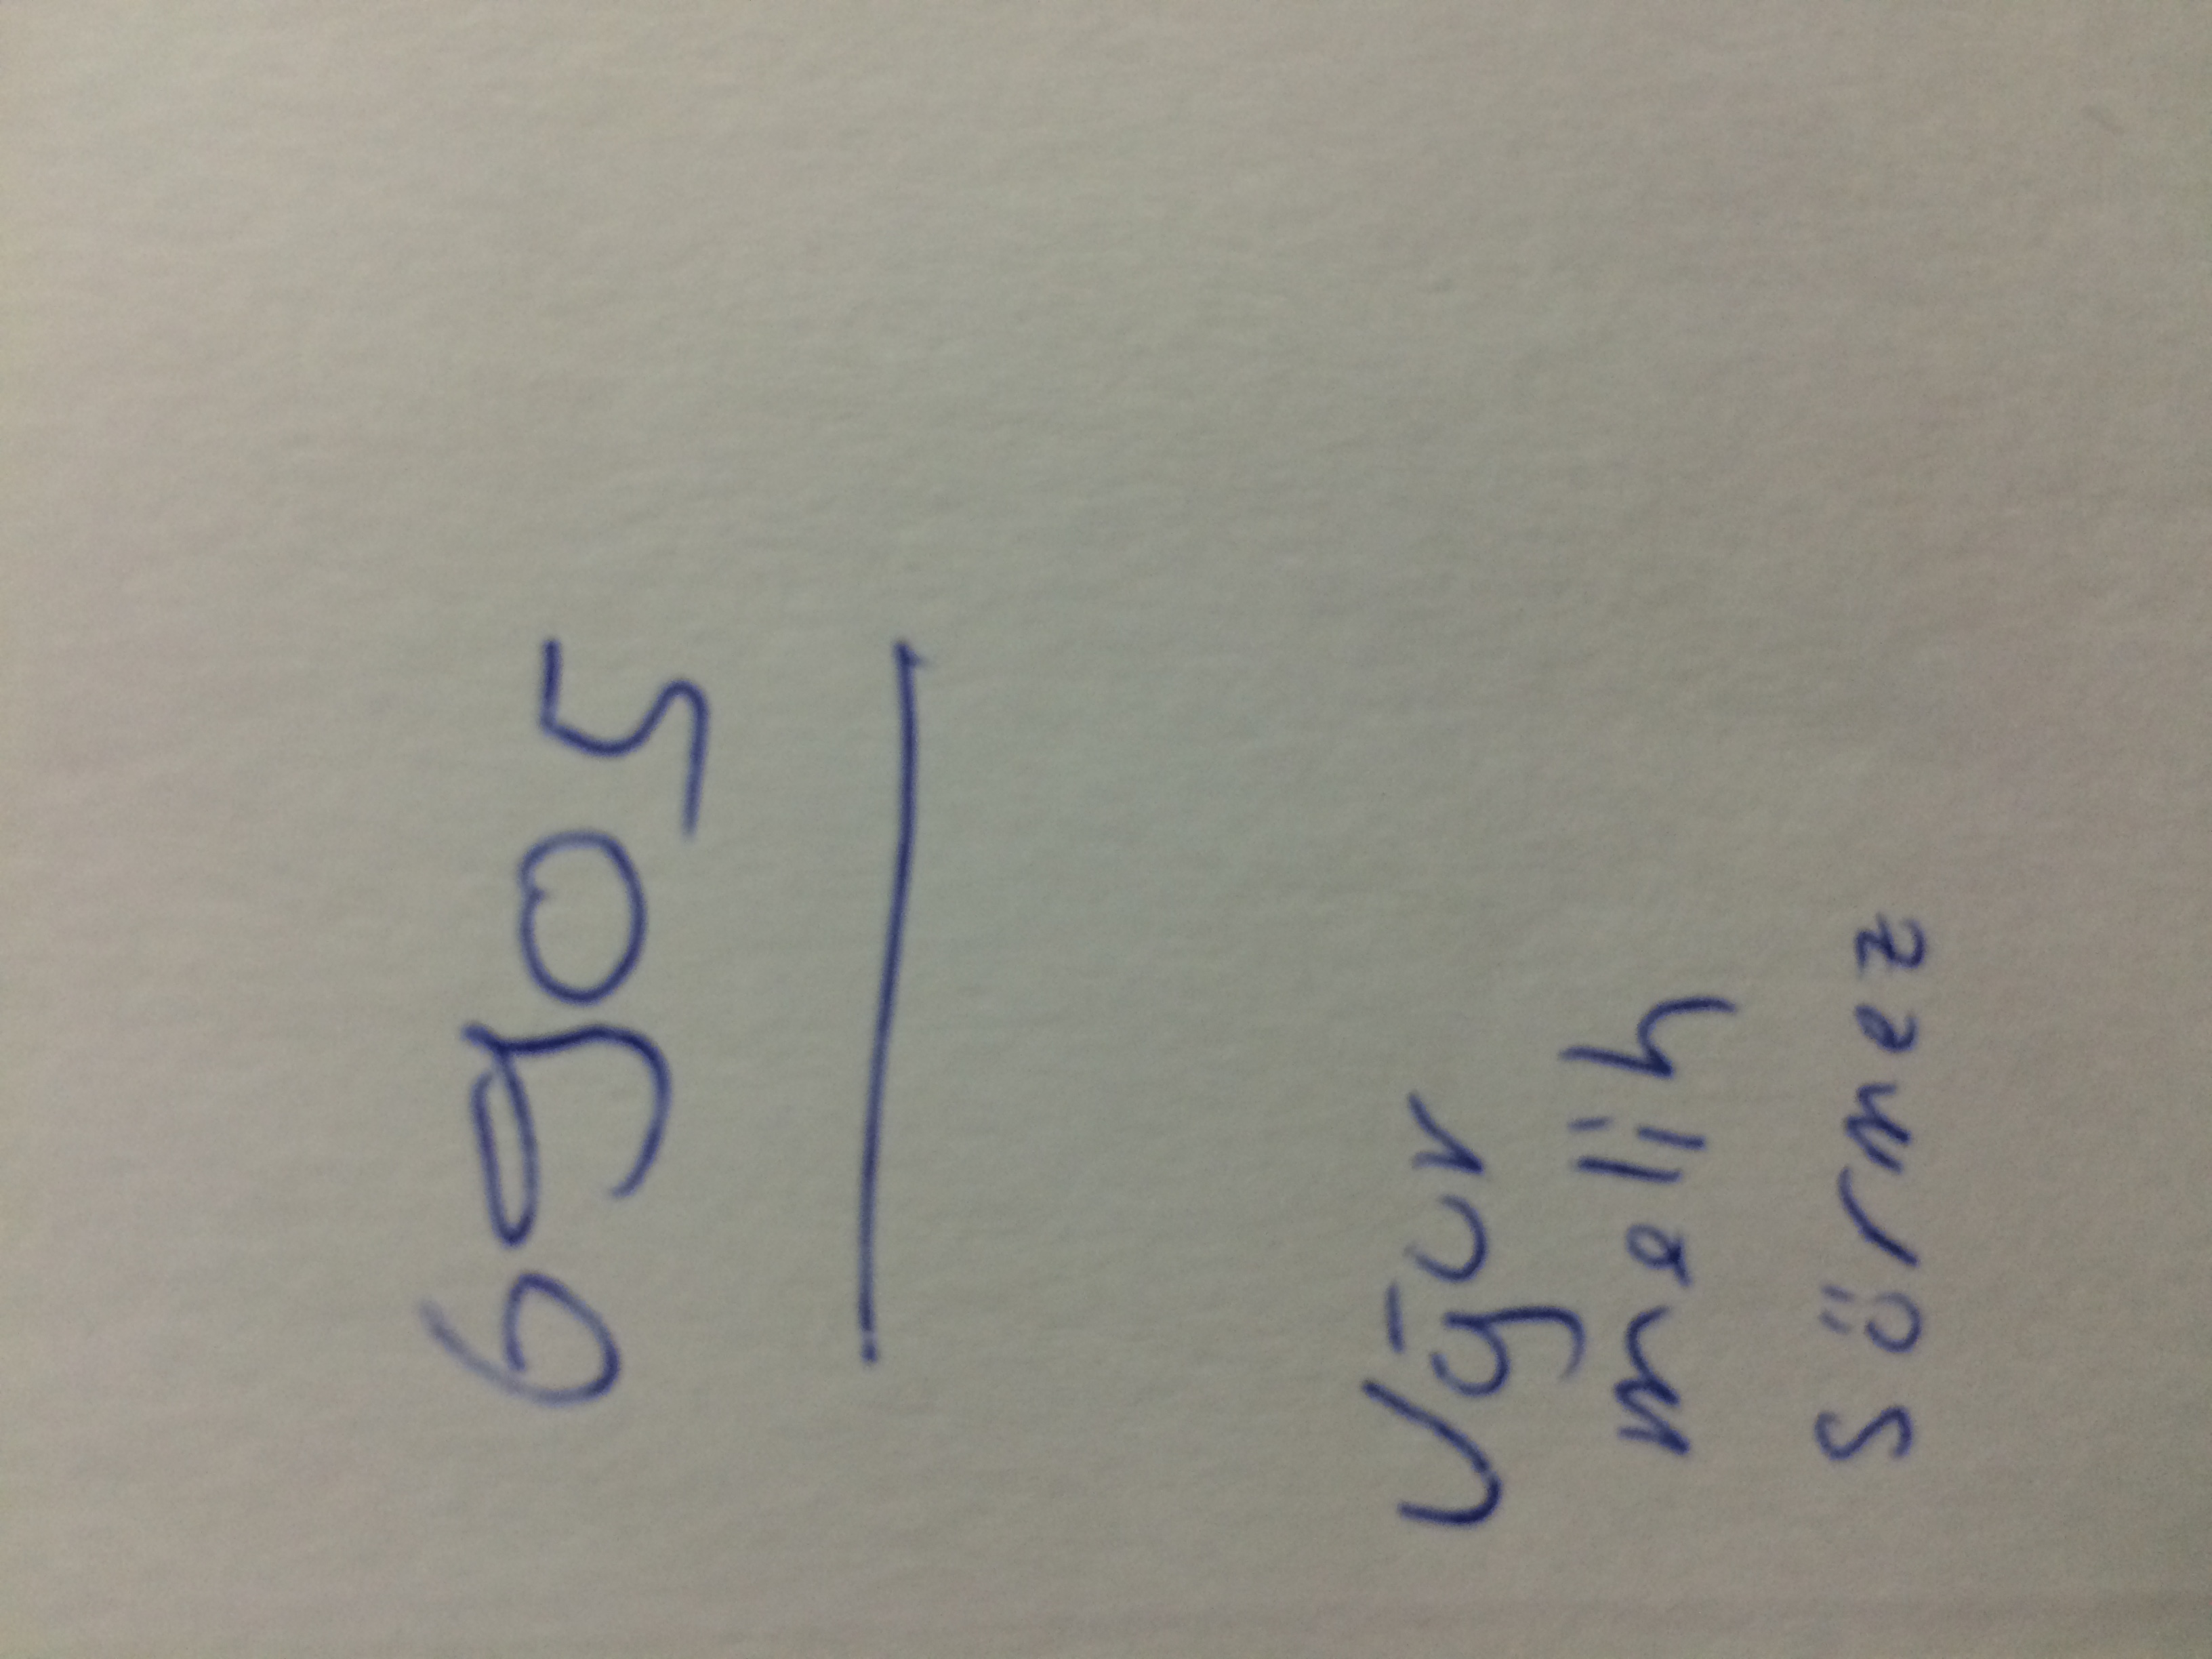 6905
Uğur
melih
sörmez